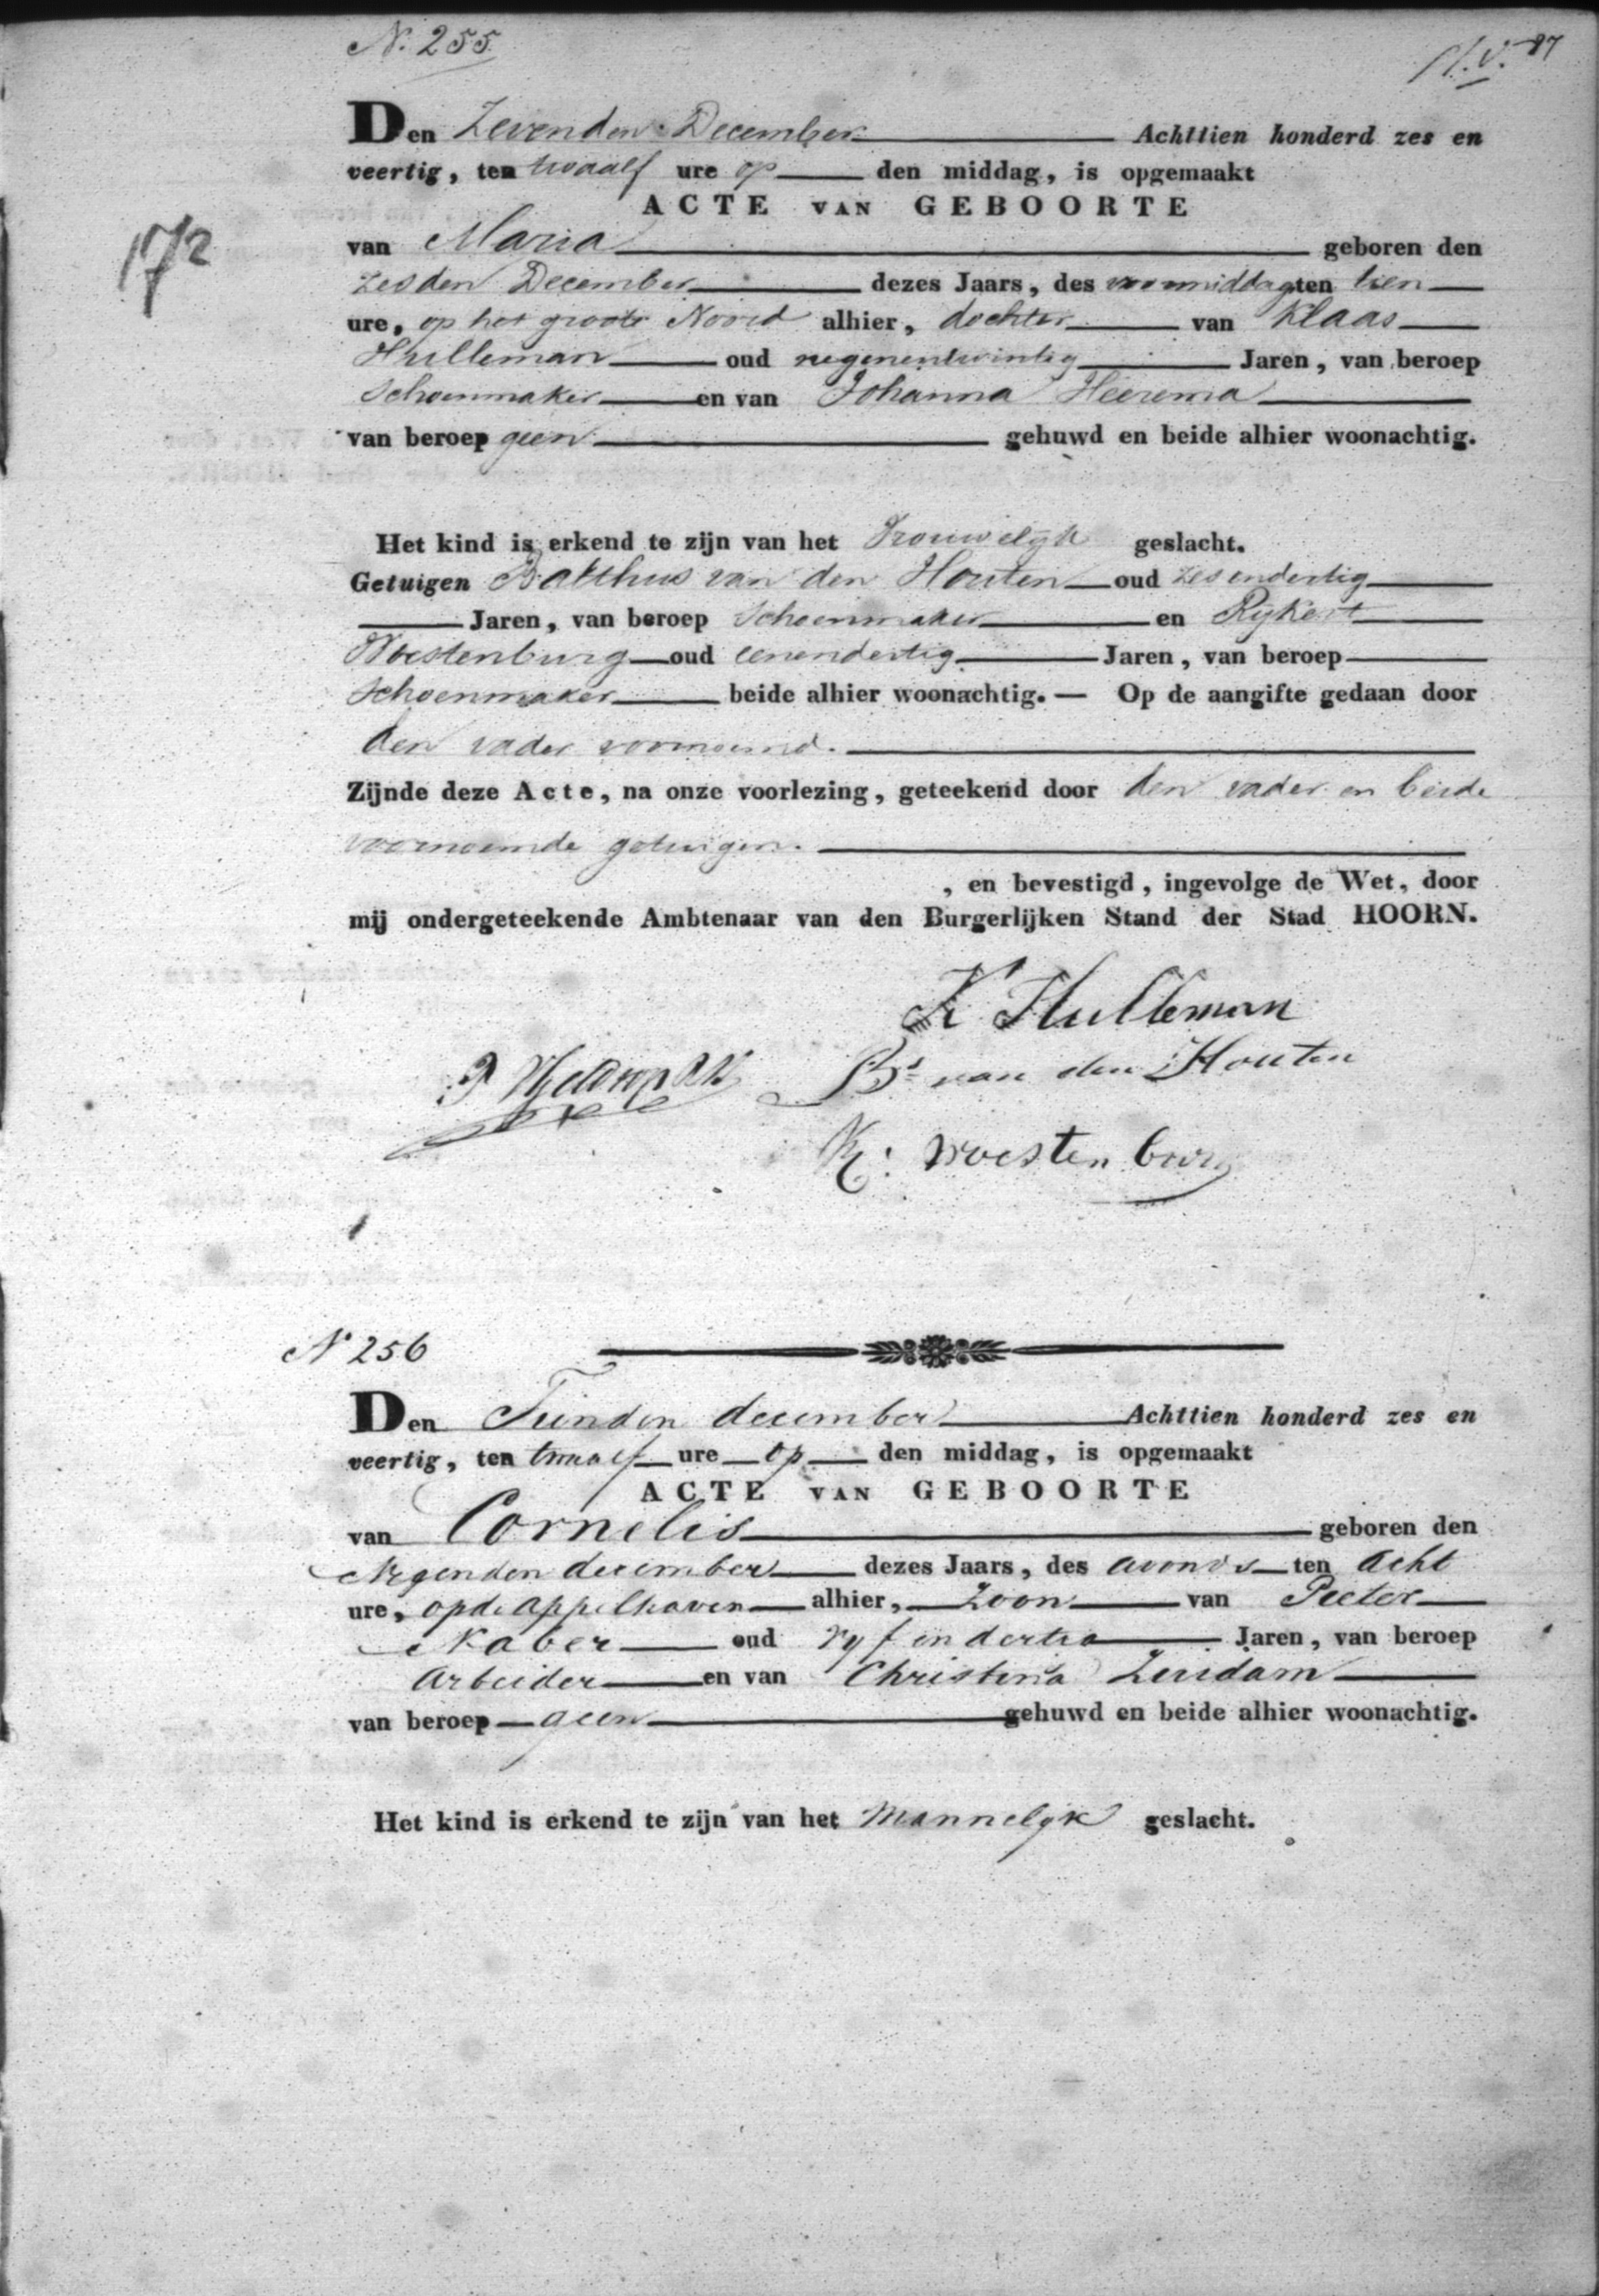 N. 255
87
172
Den Zevenden December Achttien honderd zes en
veertig, ten twaalf ure op den middag, is opgemaakt
ACTE VAN GEBOORTE
van Maria geboren den
zesden December dezes Jaars, des voormiddag ten tien
ure, op het groote Noord alhier, dochter van Klaas
Hulleman oud negenentwintig Jaren, van beroep
Schoenmaker en van Johanna Heerema
van beroep geen gehuwd en beide alhier woonachtig.
Het kind is erkend te zijn van het Vrouwelyk geslacht.
Getuigen Balthus van den Houten oud zesendertig
Jaren, van beroep Schoenmaker en Rykert
Woestenburg oud eenendertig Jaren, van beroep
Schoenmaker beide alhier woonachtig. — Op de aangifte gedaan door
den vader voornoemd.
Zijnde deze Acte, na onze voorlezing, geteekend door den vader en beide
voornoemde getuigen.
, en bevestigd, ingevolge de Wet, door
mij ondergeteekende Ambtenaar van den Burgerlijken Stand der Stad HOORN.
K Hulleman
Bs van den Houten
R: Woestenburg
N 256
Den Tienden december Achttien honderd zes en
veertig, ten twaalf ure op den middag, is opgemaakt
ACTE VAN GEBOORTE
van Cornelis geboren den
Negenden december dezes Jaars, des avonds ten acht
ure, op de appelhaven alhier, Zoon van Pieter
Kaber oud vyf en dertig Jaren, van beroep
Arbeider en van Christina Zuidam
van beroep geen gehuwd en beide alhier woonachtig.
Het kind is erkend te zijn van het Mannelyk geslacht.